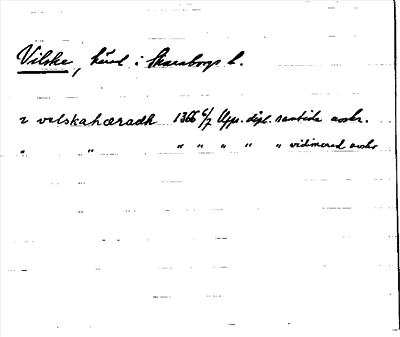 Vilske, härad i Skaraborgs l.
i vilskahæradh 1366 6/7 Upps. dipl. samtida avskr.
" " " " " " " vidimerad avskr